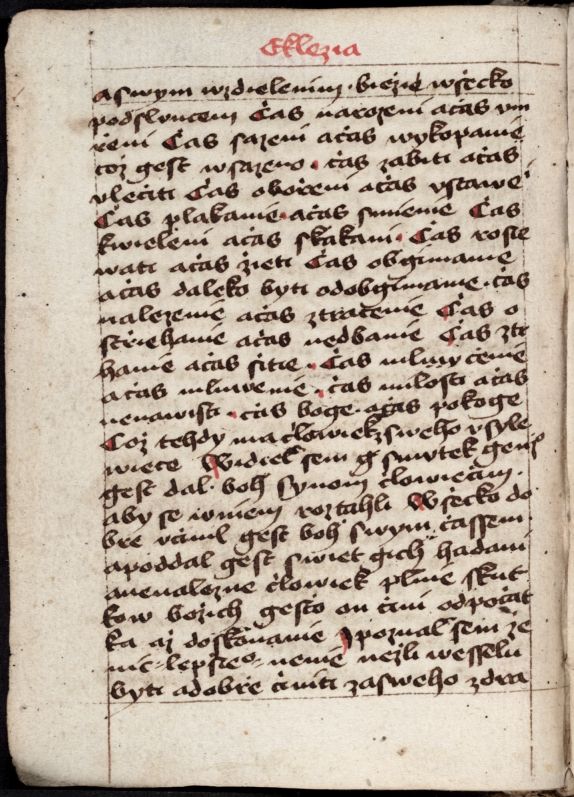 Eklezia
a swym wzdielenim · biezie wssecko
pod sluncem Čas narozeni a čas vm
rzeni Čas sazeni a čas wykopanie
coz gest wsazeno · čas zabiti a čas
vlečiti Čas oborzeni a čas vstawe
Čas plakanie a čas smienie Čas
kwieleni a čas skakani · Čas rosie
wati a čas zieti Čas obgimanie
a čas daleko byti od obgimanie · čas
nalezenie a čas ztracenie Čas o
strziehanie a čas nedbanie Čas ztr
hanie a čas sitie · Čas mlnyčenie
a čas mluwenie · čas milosti a čas
nenawisti · čas boge · a čas pokoge
Coz tehdy ma człowiek z sweho vsyle
wiece Widiel sem g smutek genz
gest dal · boh synom człowieczim ·
aby se w niem roztahli Wssecko do
brze včinil gest boh swym čassem
a poddal gest swiet gich hadani
a nenalezne człowiek plnie skut
kow bozich gesto on čini od počat
ka az do skonanie J poznal sem ze
nic lepsieo nenie nezli wesseliti
byti a dobrze činiti za sweho zdra